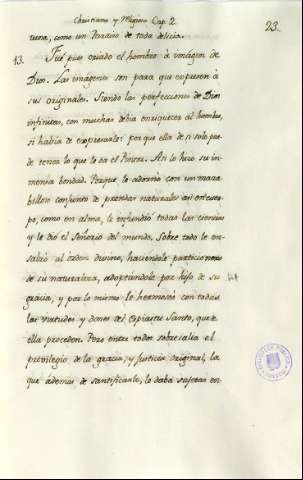 Christiano y Mistico Cap. 2
23.
rura, como un Paraíso de toda delicia.
13. Fué pues criado el hombre à imágen de
Dios. Las imágenes son para que expresen à
sus originales. Siendo las perfecciones de Dios
infinitas, con muchas debia enriquecer al hombre,
si habia de expresarle: por que ella de si solo pue-
de tener lo que le da el Pintor. Asi lo hizo su in-
mensa bondad. Porque le adornó con un mara-
billoso conjunto de prendas naturales asi en cuer-
po, como en alma, le infundió todas las ciencias
y le dió el Señorio del mundo. Sobre todo le en-
salzó al orden divino, haciendole participante
de su naturaleza, adoptandole por hijo de su
gracia, y por lo mismo le hermoseó con todas
las virtudes y dones del Espiritu Santo, que de
ella proceden. Pero entre todos sobresalia el
privilegio de la gracia, y Justicia original, la
que ademas de santificarle, le daba sujetas en-